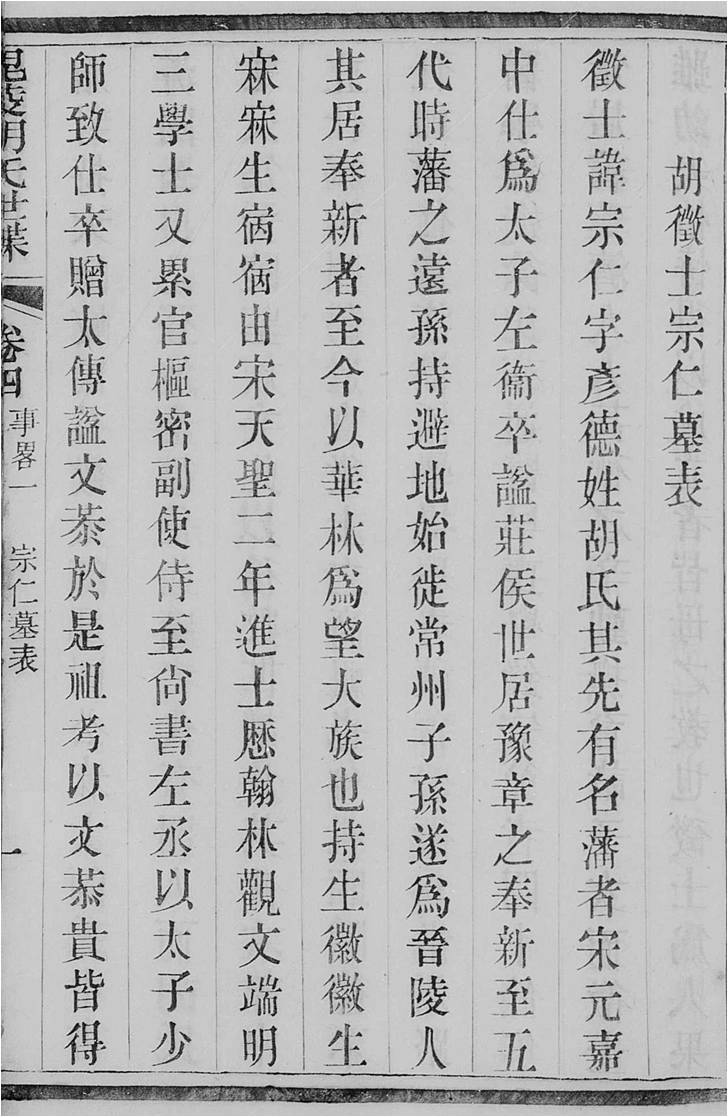 胡徵士宗仁墓表
徵士諱宗仁字彥德姓胡氏其先有名藩者宋元嘉
中仕爲太子左衞卒諡莊侯世居豫章之奉新至五
代時藩之遠孫持避地始徙常州子孫遂爲晉陵人
其居奉新者至今以華林爲望大族也持生徽徽生
寀寀生宿宿由宋天聖二年進士歷翰林觀文端明
三學士又累官樞密副使侍至尙書左丞以太子少
師致仕卒贈太傅諡文恭於是祖考以文恭貴皆得
毘陵胡氏世牒 卷四 事畧一 宗仁墓表 一